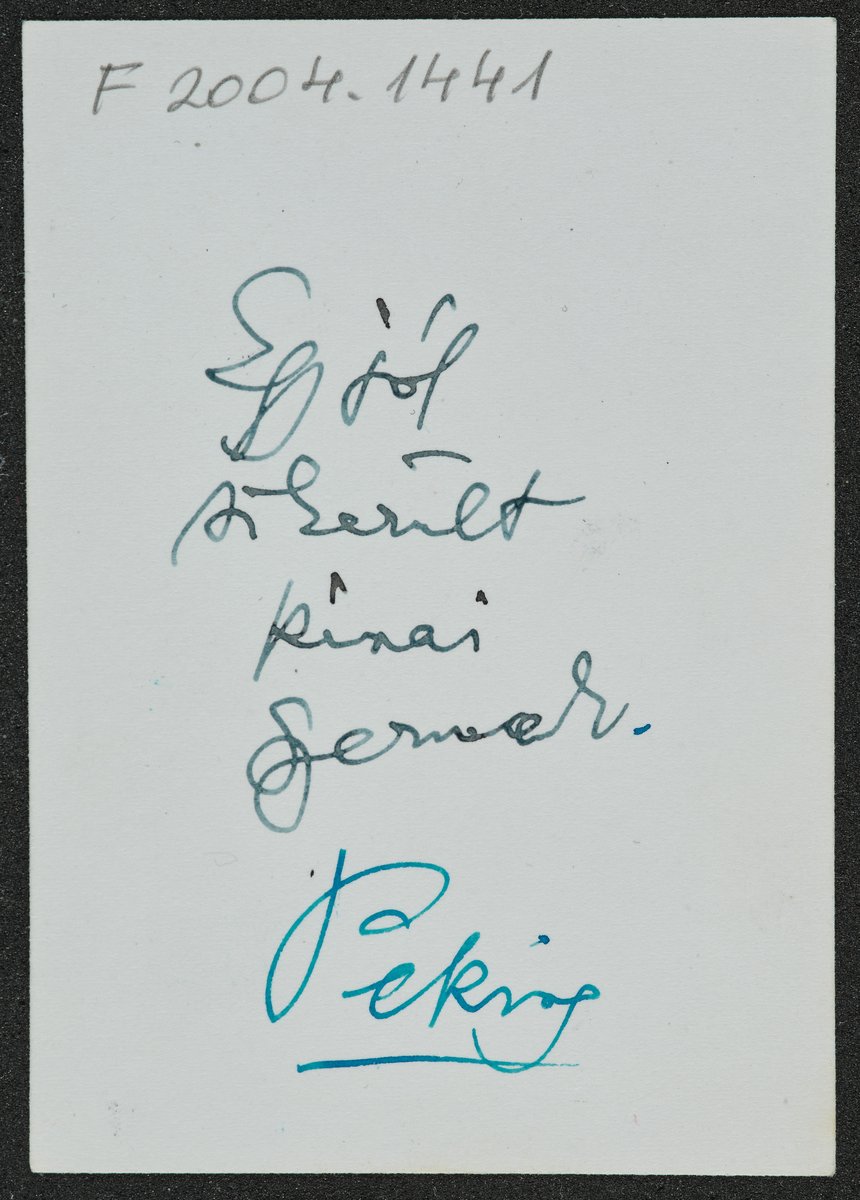 F 2004.1441
Egy jól
sikerült
kinai
gyermek.
Peking